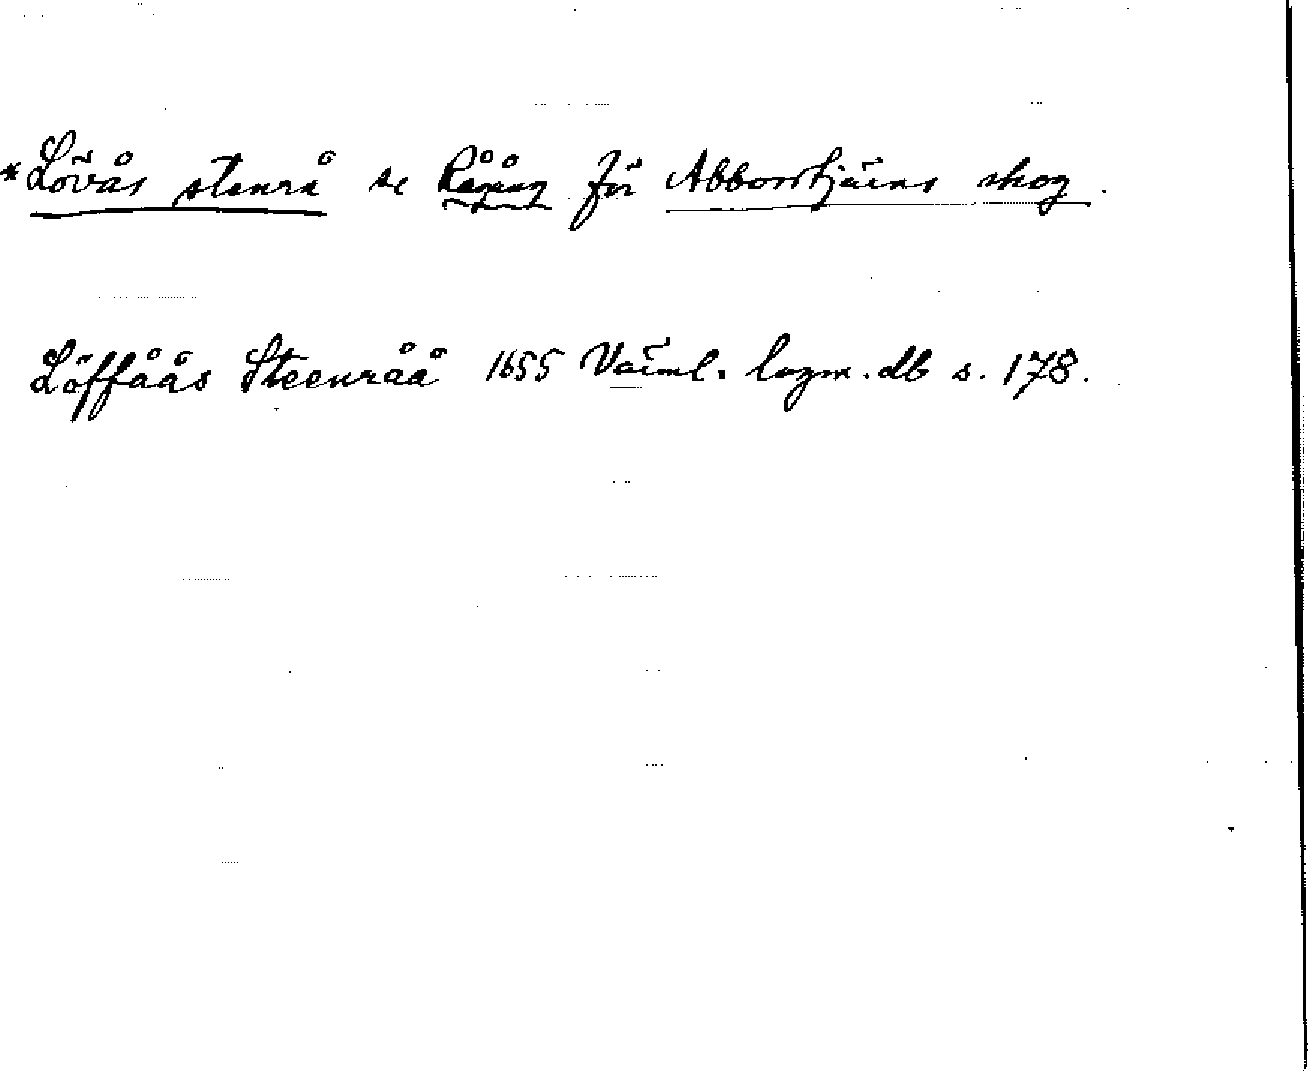 *Lövås stenrå se Rågång för Abborrtjärns skog.
Löffåås Steenråå 1655 Värml. lagm. db s. 178.